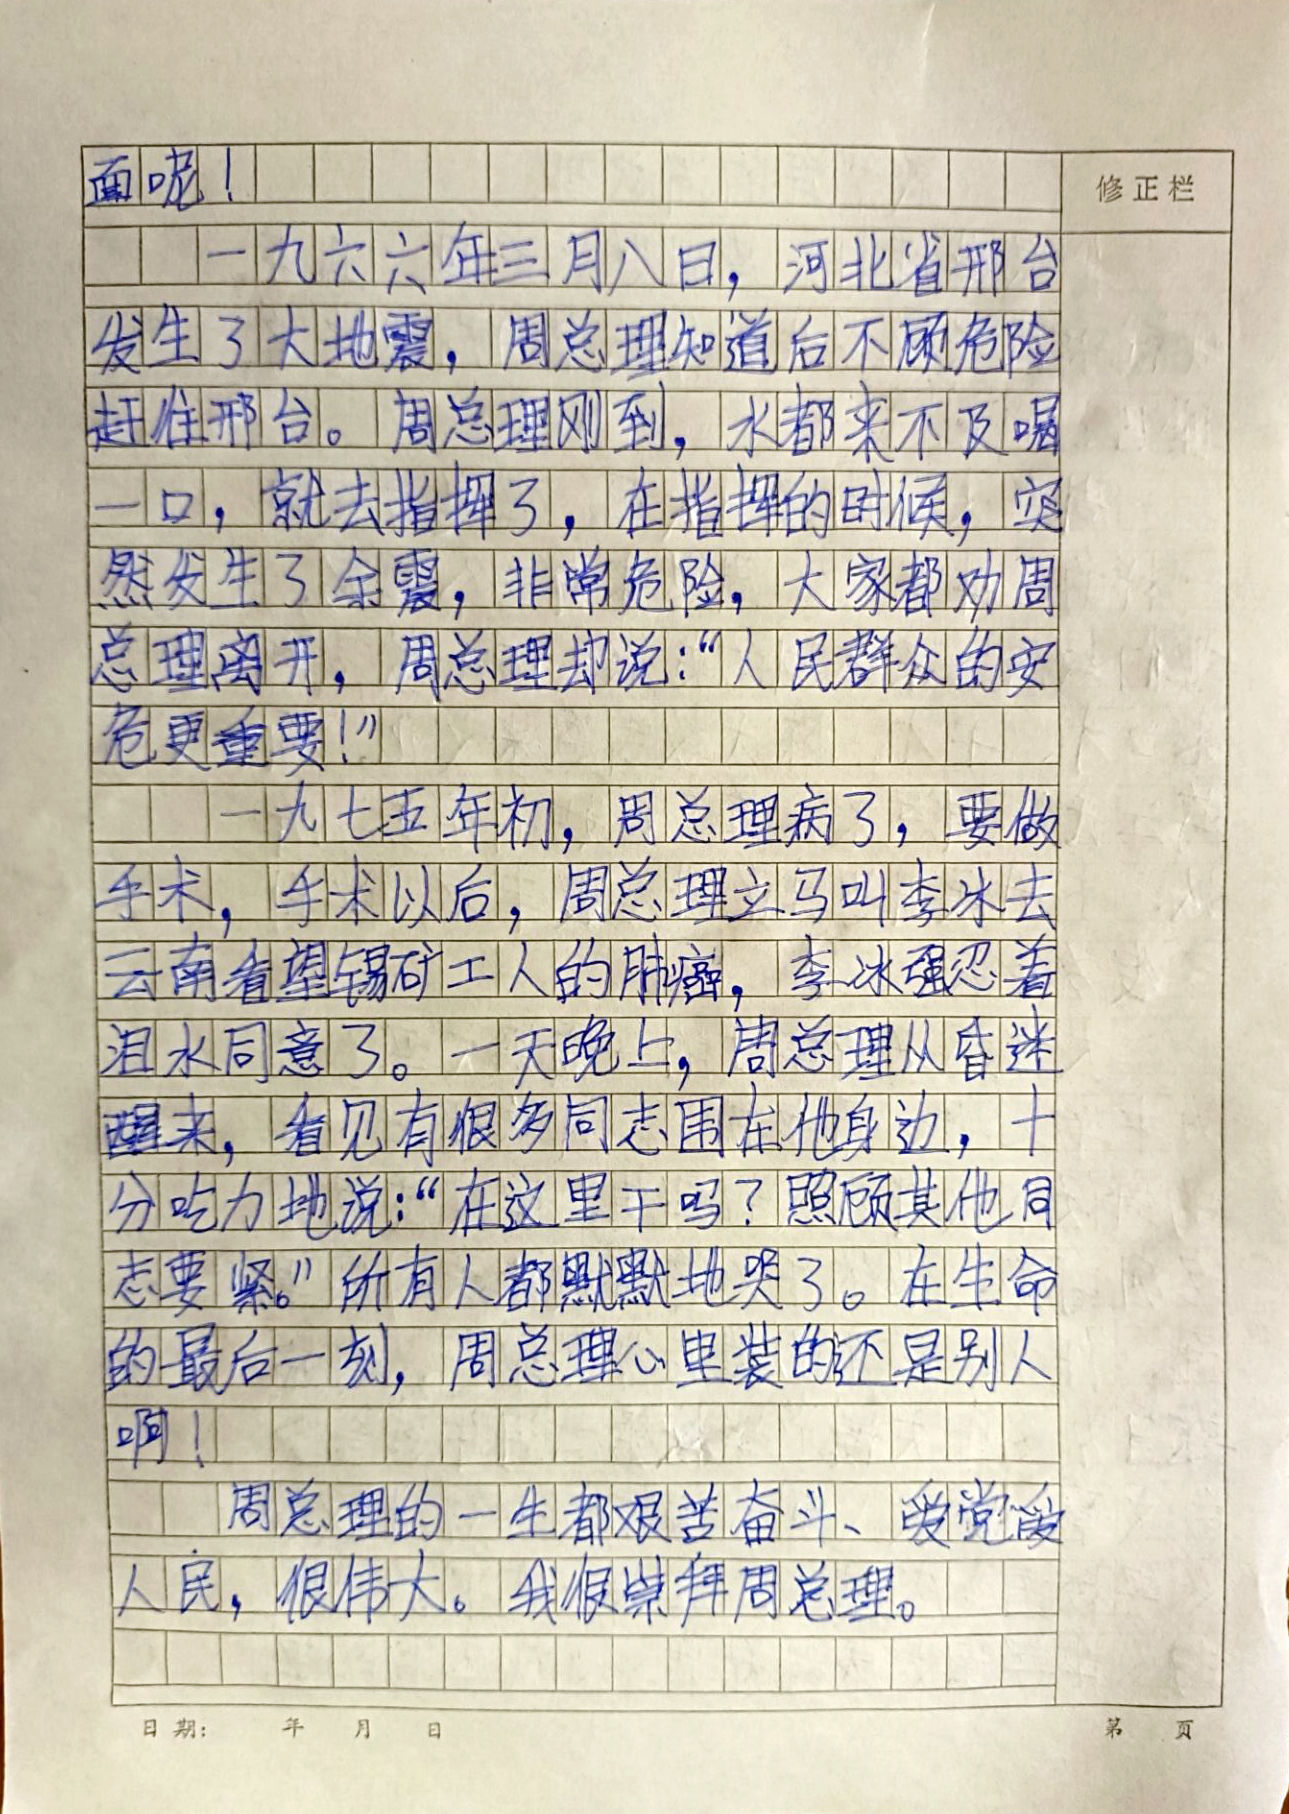 面呢！
修正栏
一九六六年三月八日，河北省邢台
发生了大地震，周总理知道后不顾危险
赶往邢台。周总理刚到，水都来不及喝
一口，就去指挥了，在指挥的时候，突
然发生了余震，非常危险，大家都劝周
总理离开，周总理却说：“人民群众的安
危更重要！”
一九七五年初，周总理病了，要做
手术，手术以后，周总理立马叫李冰去
云南看望锡矿工人的肺癌，李冰强忍着
泪水同意了。一天晚上，周总理从昏迷
醒来，看见有很多同志围在他身边，十
分吃力地说：“在这里干吗？照顾其他同
志要紧。”所有人都默默地哭了。在生命
的最后一刻，周总理心里装的还是别人
啊！
周总理的一生都艰苦奋斗、爱党爱
人民，很伟大。我很崇拜周总理。
日期： 年 月 日
第 页